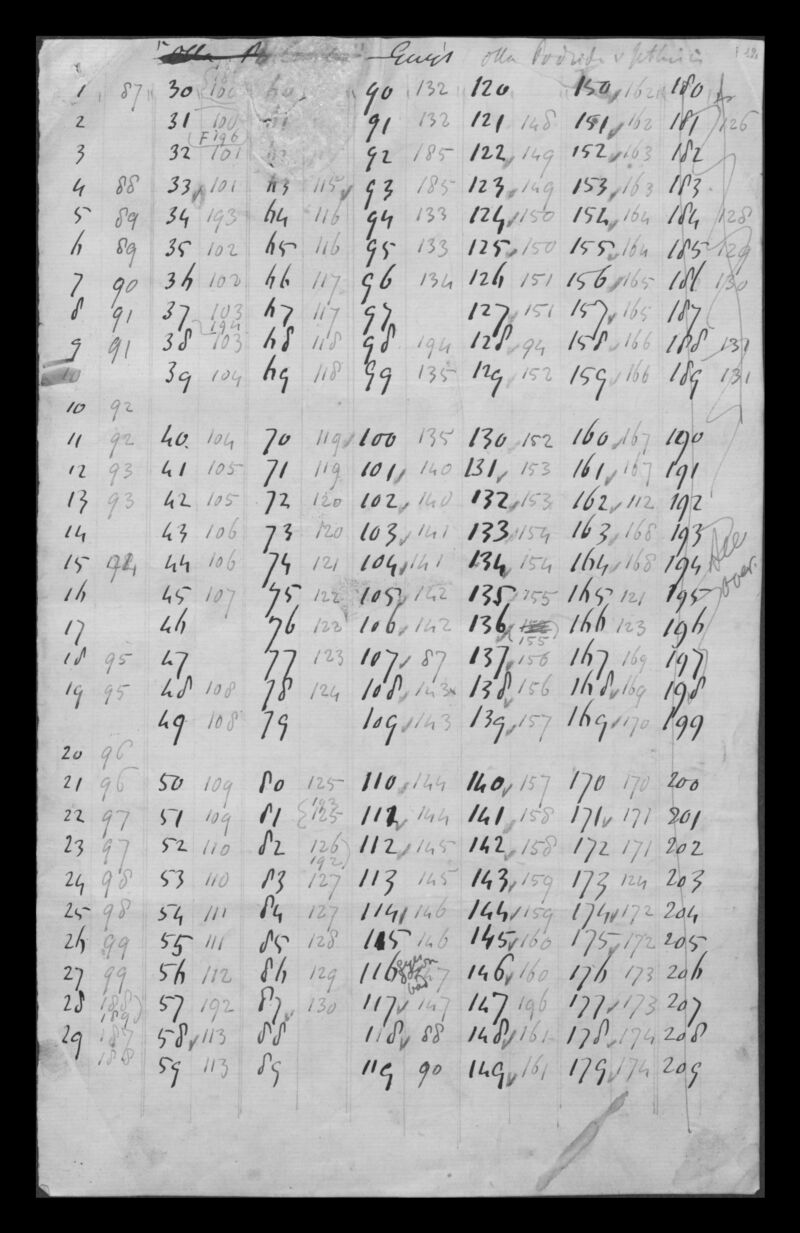 "Olla Po — Guys Olla Podrida v
1 87 30 100 60 90 132 120 150 162 180
2 31 100 91 132 121 148 151 162 181 126
(F196
3 32 101 92 185 122 149 152 163 182
4 88 33 101 63 115 93 185 123 149 153 163 183
5 89 34 193 64 116 94 133 124 150 154 164 184 128
6 89 35 102 65 116 95 133 125 150 155 164 185 129
7 90 36 102 66 117 96 134 126 151 156 165 186 130
8 91 37 103 67 117 97 127 151 157 165 187
194
9 91 38 103 68 118 98 194 128 94 158 166 188 131
10 39 104 69 118 99 135 129 152 159 166 189 131
10 92
11 92 40 104 70 119 100 135 130 152 160 167 190
12 93 41 105 71 119 101 140 131 153 161 167 191
13 93 42 105 72 120 102 140 132 153 162 112 192
14 43 106 73 120 103 141 133 154 163 168 193 See
15 94 44 106 74 121 104 141 134 154 164 168 194 over.
16 45 107 75 122 105 142 135 155 165 121 195
17 46 76 122 106 142 136 166 123 196
(155)
18 95 47 77 123 107 87 137 156 167 169 197
19 95 48 108 78 124 108 143 138 156 168 169 198
49 108 79 109 143 139 157 169 170 199
20 96
21 96 50 109 80 125 110 144 140 157 170 170 200
193
22 97 51 109 81 125 111 144 141 158 171 171 201
23 97 52 110 82 126 112 145 142 158 172 171 202
192)
24 98 53 110 83 127 113 145 143 159 173 124 203
25 98 54 111 84 127 114 146 144 159 174 172 204
26 99 55 111 85 128 115 146 145 160 175 172 205
27 99 56 112 86 129 116 147 146 160 176 173 206
28 188) 57 192 87 130 117 147 147 196 177 173 207
189
29 187 58 113 88 118 88 148 161 178 174 208
188
59 113 89 119 90 149 161 179 174 209